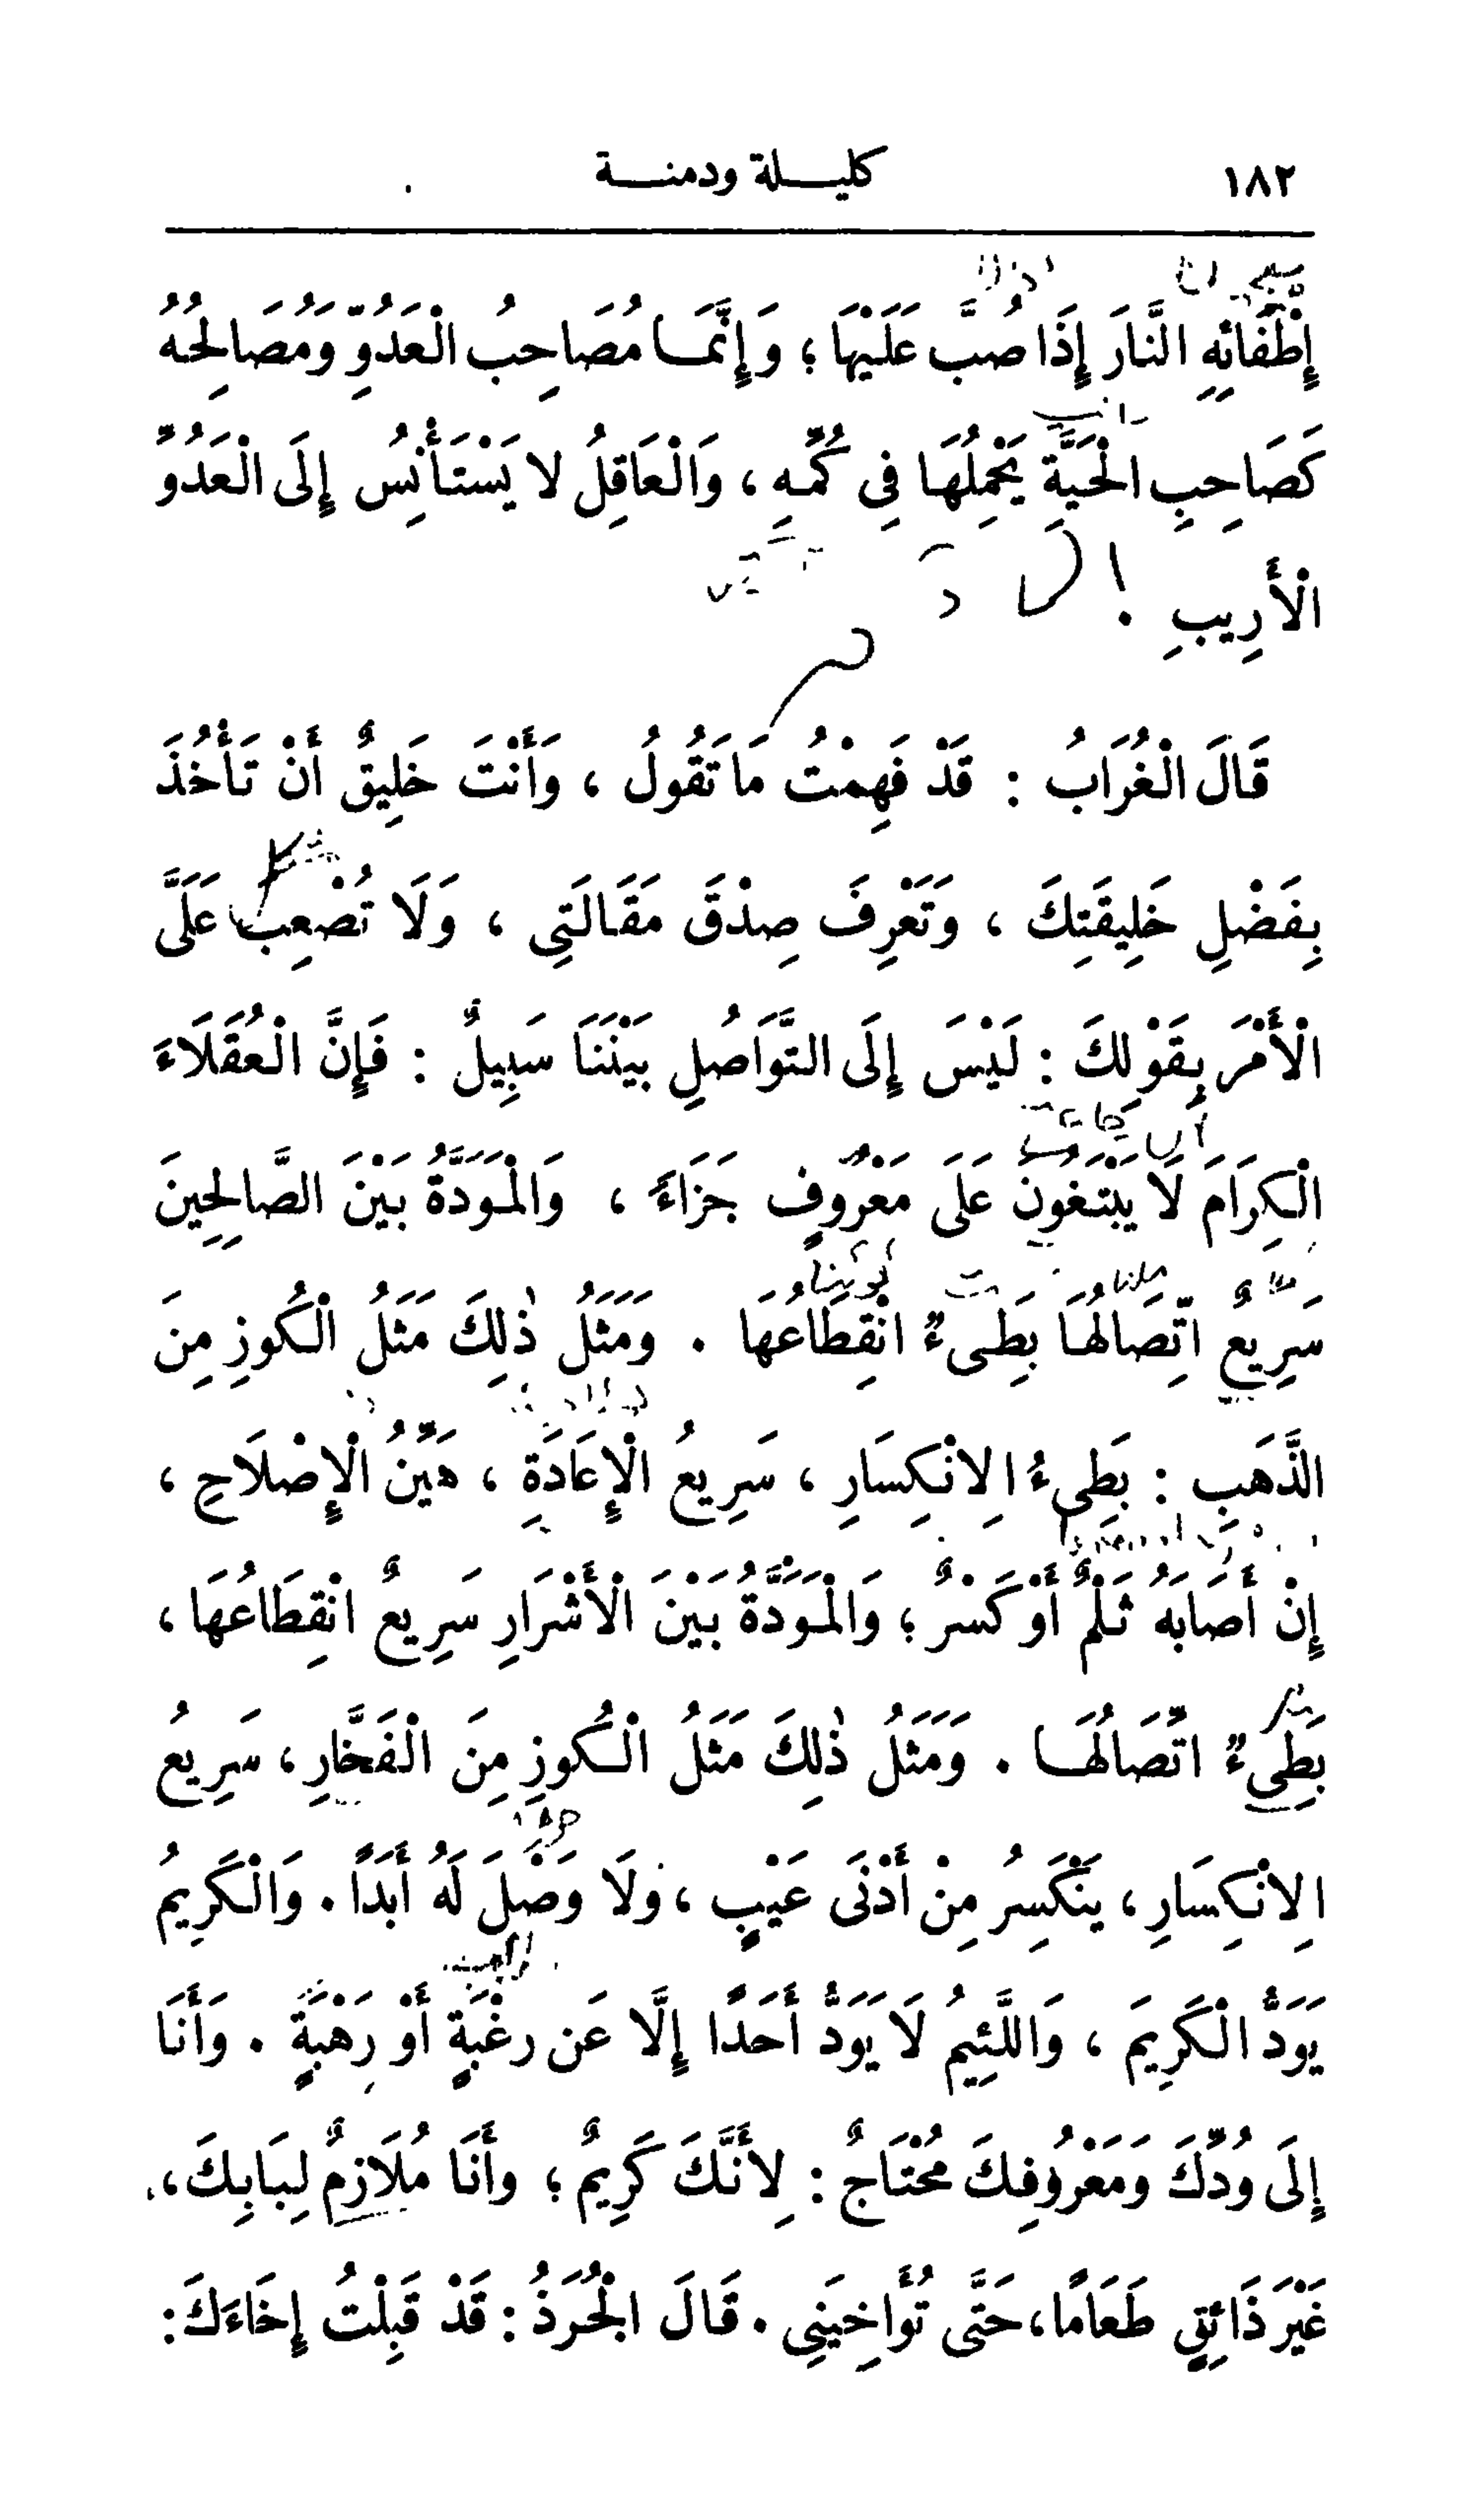 ١٨٢ كليلة ودمنة
إِطْفَائِهِ النَّارَ إِذَا صُبَّ عَلَيْهَا ؛ وَإِنَّمَا مُصَاحِبُ الْعَدُوِّ وَمُصَالِحُهُ
كَصَاحِبِ الْحَيَّةِ يَحْمِلُهَا فِي كُمِّهِ ، وَالْعَاقِلُ لا يَسْتَأْنِسُ إِلَى الْعَدُوِّ
الْأَرِيبِ .
قَالَ الْغُرَابُ : قَدْ فَهِمْتُ مَا تَقُولُ ، وَأَنْتَ خَلِيقٌ أَنْ تَأْخُذَ
بِفَضْلِ خَلِيقَتِكَ ، وَتَعْرِفَ صِدْقَ مَقَالَتِي ، وَلَا تُصْعِبَ عَلَىَّ
الْأَمْرَ بِقَوْلِكَ : لَيْسَ إِلَى التَّوَاصُلِ بَيْنَنَا سَبِيلٌ : فَإِنَّ الْعُقَلَاءَ
الْكِرَامَ لَا يَبْتَغُونَ عَلَى مَعْرُوفٍ جَزَاءً ، وَالْمَوَدَّةُ بَيْنَ الصَّالِحِينَ
سَرِيعٌ اتِّصَالُهَا بَطِىءٌ انْقِطَاعُهَا . وَمَثَلُ ذٰلِكَ مَثَلُ الْكُوزِ مِنَ
الذَّهَبِ : بَطِىءُ الِانْكِسَارِ ، سَرِيعُ الْإِعَادَةِ ، هَيِّنُ الْإِصْلَاحِ ،
إِنْ أَصَابَهُ ثَلْمٌ أَوْ كَسْرٌ ؛ وَالْمَوَدَّةُ بَيْنَ الْأَشْرَارِ سَرِيعٌ انْقِطَاعُهَا ،
بَطِىءٌ اتِّصَالُهَا . وَمَثَلُ ذٰلِكَ مَثَلُ الْكُوزِ مِنَ الْفَخَّارِ ، سَرِيعُ
الِانْكِسَارِ ، يَنْكَسِرُ مِنْ أَدْنَى عَيْبٍ ، وَلَا وَصْلَ لَهُ أَبَدًا . وَالْكَرِيمُ
يَوَدُّ الْكَرِيمَ ، وَاللَّئِيمُ لَا يَوَدُّ أَحَدًا إِلَّا عَن رغْبَةٍ أَوْ رَهْبَةٍ . وَأَنَا
إِلَى وُدِّكَ وَمَعْرُوفِكَ مُحْتَاجٌ : لِأَنَّكَ كَرِيمٌ ؛ وأَنَا مُلَازِمٌ لِبَابِكَ ،
غَيْرَ ذَائِقٍ طَعَامًا ، حَتَّى تُؤَاخِيَنِي . قَالَ الْجُرَذُ : قَدْ قَبِلْتُ إِخَاءَكَ :